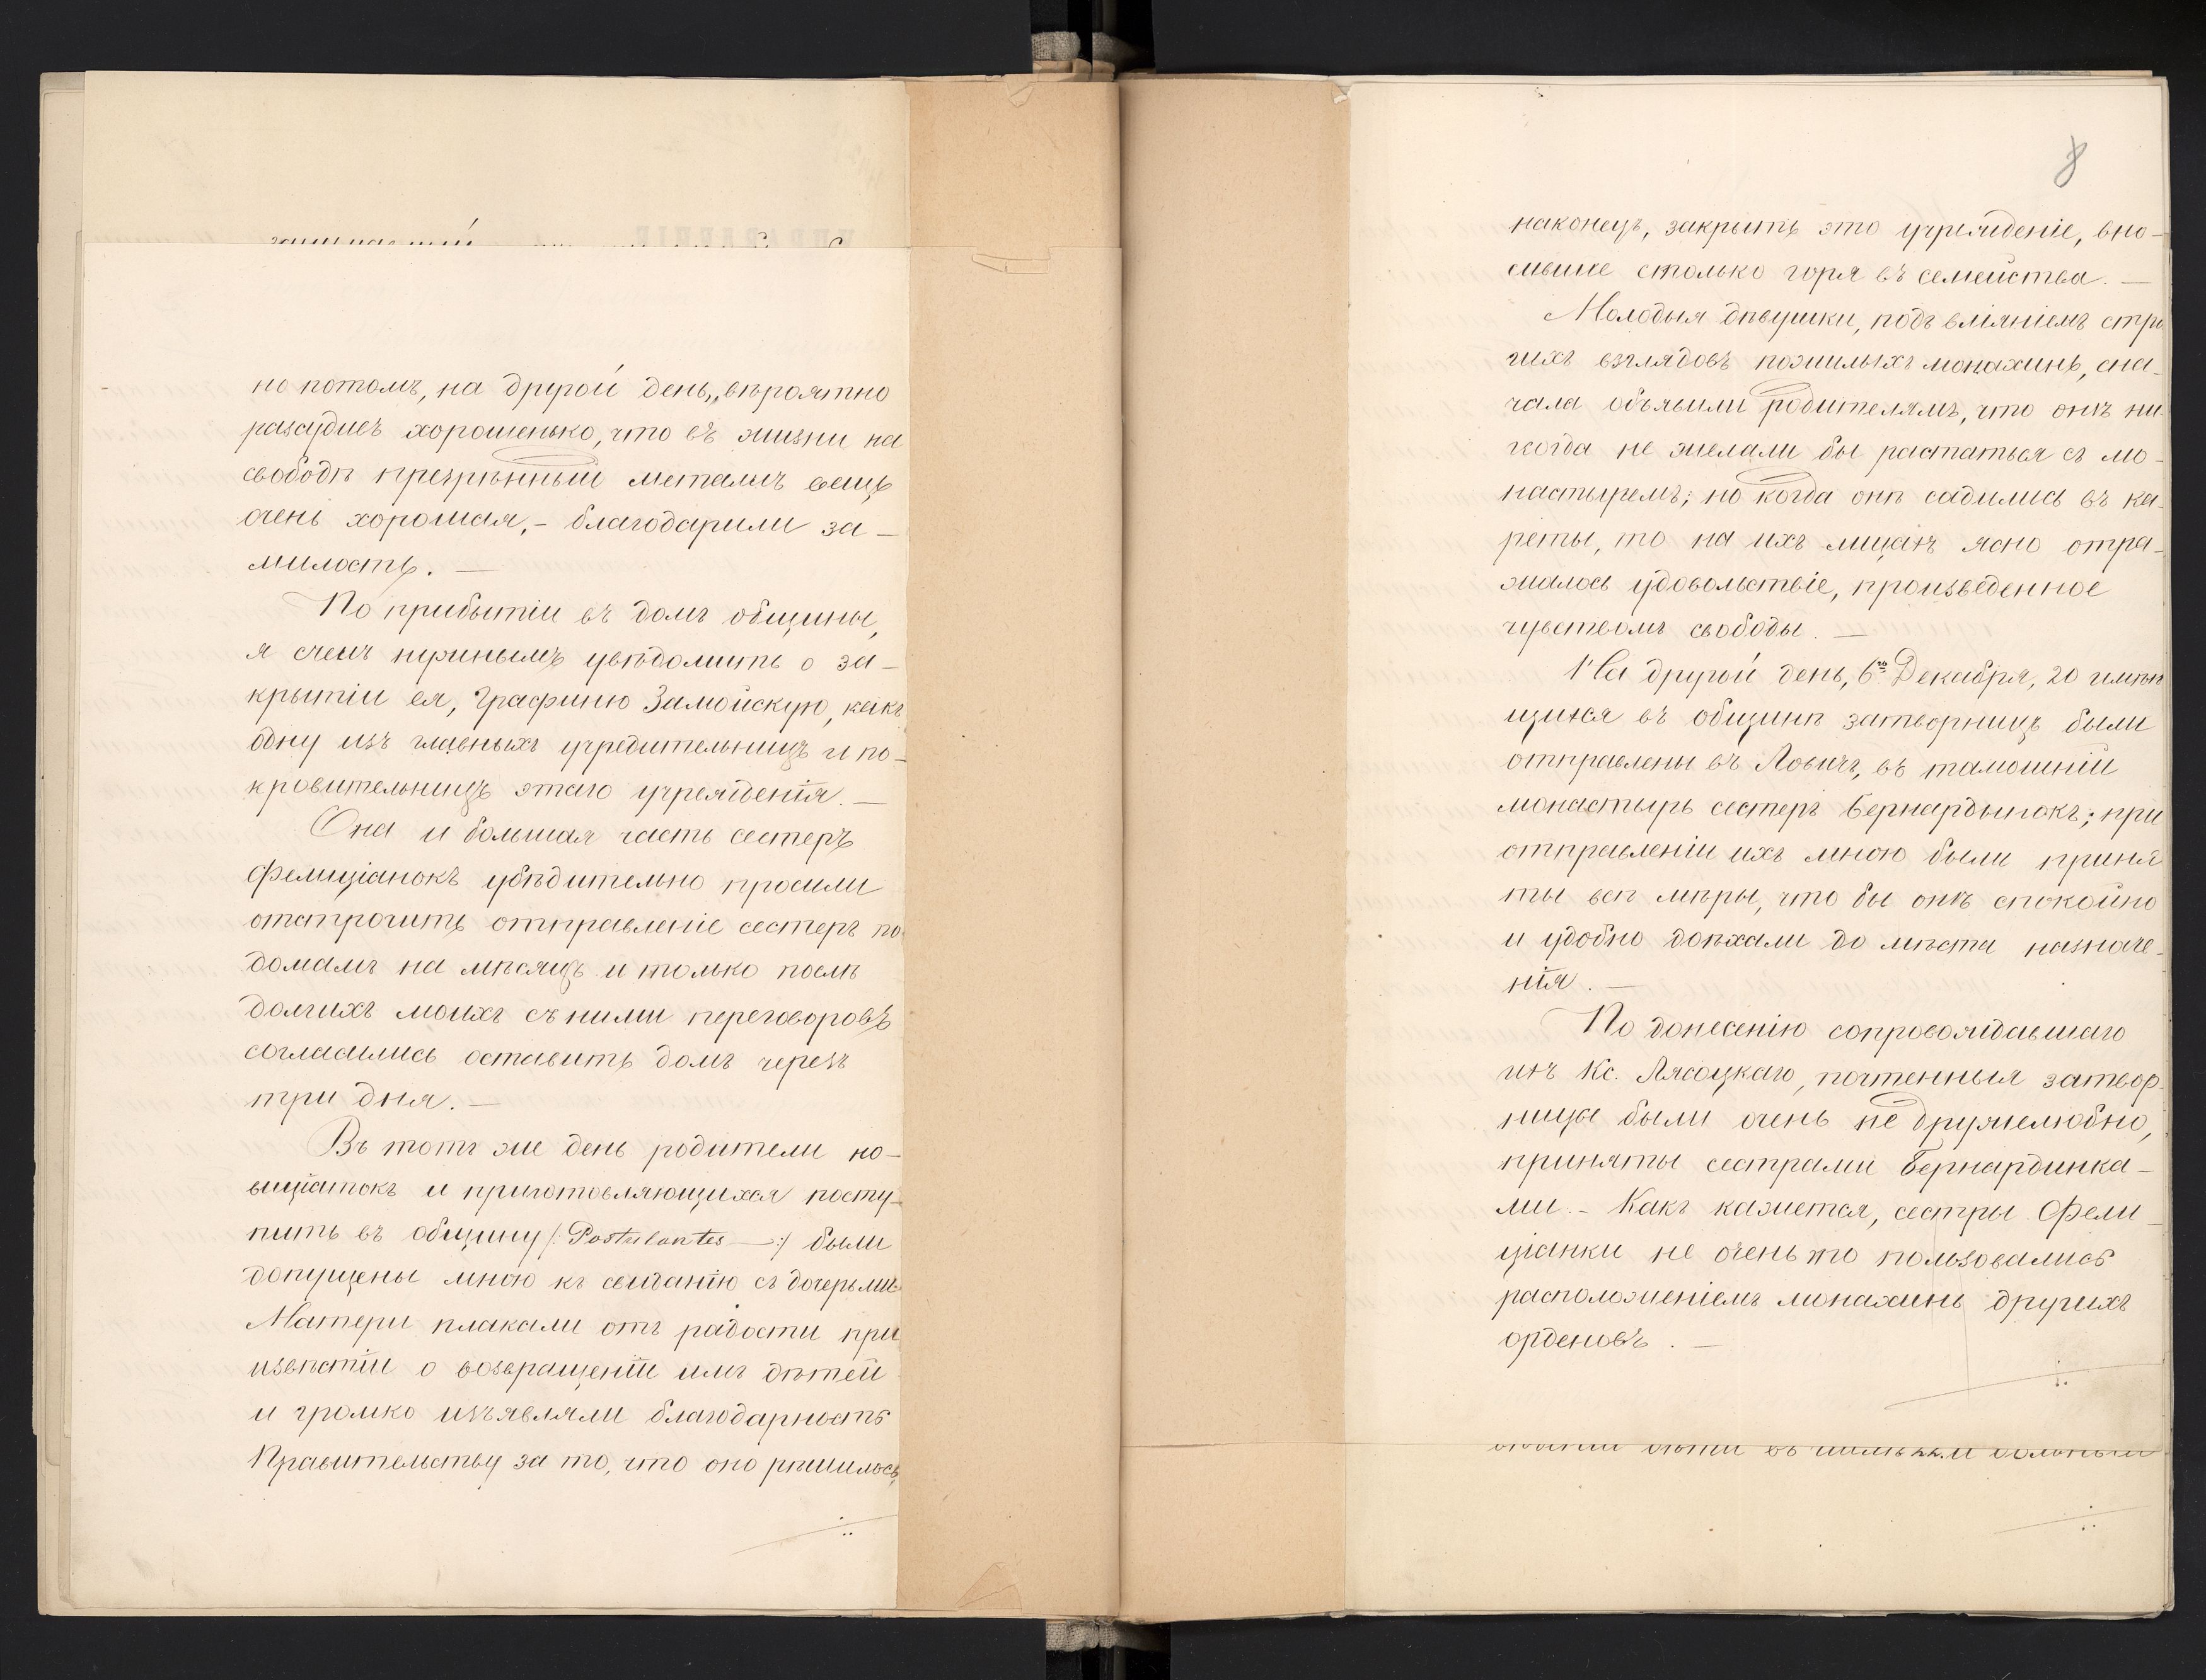 но потомъ, на другой день, вѣроятно
разсудивъ хорошенько, что въ жизни на
свободѣ презрѣнный металлъ вещь
очень хорошая, - благодарили за -
милость. —
По прибытіи въ домъ общины,
я счелъ нужнымъ увѣдомить о за-
крытіи ея, Графиню Замойскую, какъ
одну изъ главныхъ учредительницъ и по-
кровительницъ этаго учрежденія. —
Она и большая часть сестеръ
Фелиціанокъ убѣдительно просили
отстрочить отправленіе сестеръ по
домамъ на мѣсяцъ и только послѣ
долгихъ моихъ съ ними переговоровъ
согласились оставить домъ черезъ
три дня. —
Въ тотъ же день родители но-
виціатокъ и приготовляющихся посту-
пить въ общину /: Postulantes —:/ были
допущены мною къ свиданію съ дочерьми
Матери плакали отъ радости при
извѣстіи о возвращеніи имъ дѣтей
и громко изъявляли благодарность
Правительству за то, что оно рѣшилось,
8
наконецъ, закрыть это учрежденіе, вно-
сившее столько горя въ семейства. —
Молодыя дѣвушки, подъ вліяніемъ стро
гихъ взглядовъ пожилыхъ монахинь, сна-
чала объявили родителямъ, что онѣ ни-
когда не желали бы растаться съ мо-
настыремъ; но когда онѣ садились въ ка-
реты, то на ихъ лицахъ ясно отра-
жалось удовольствіе, произведенное
чувствомъ свободы. —
На другой день, 6го Декабря, 20 имѣю
щихся въ общинѣ затворницъ были
отправлены въ Ловичъ, въ тамошній
монастырь сестеръ Бернардынокъ; при
отправленіи ихъ мною были приня
ты всѣ мѣры, что бы онѣ спокойно
и удобно доѣхали до мѣста назначе-
нія. —
По донесенію сопровождавшаго
ихъ Кс. Лясоцкаго, почтенныя затвор-
ницы были очень не дружелюбно,
приняты сестрами Бернардинка-
ми. - Какъ кажется, сестры Фели-
ціанки не очень то пользовались
расположеніемъ монахинь другихъ
орденовъ. —